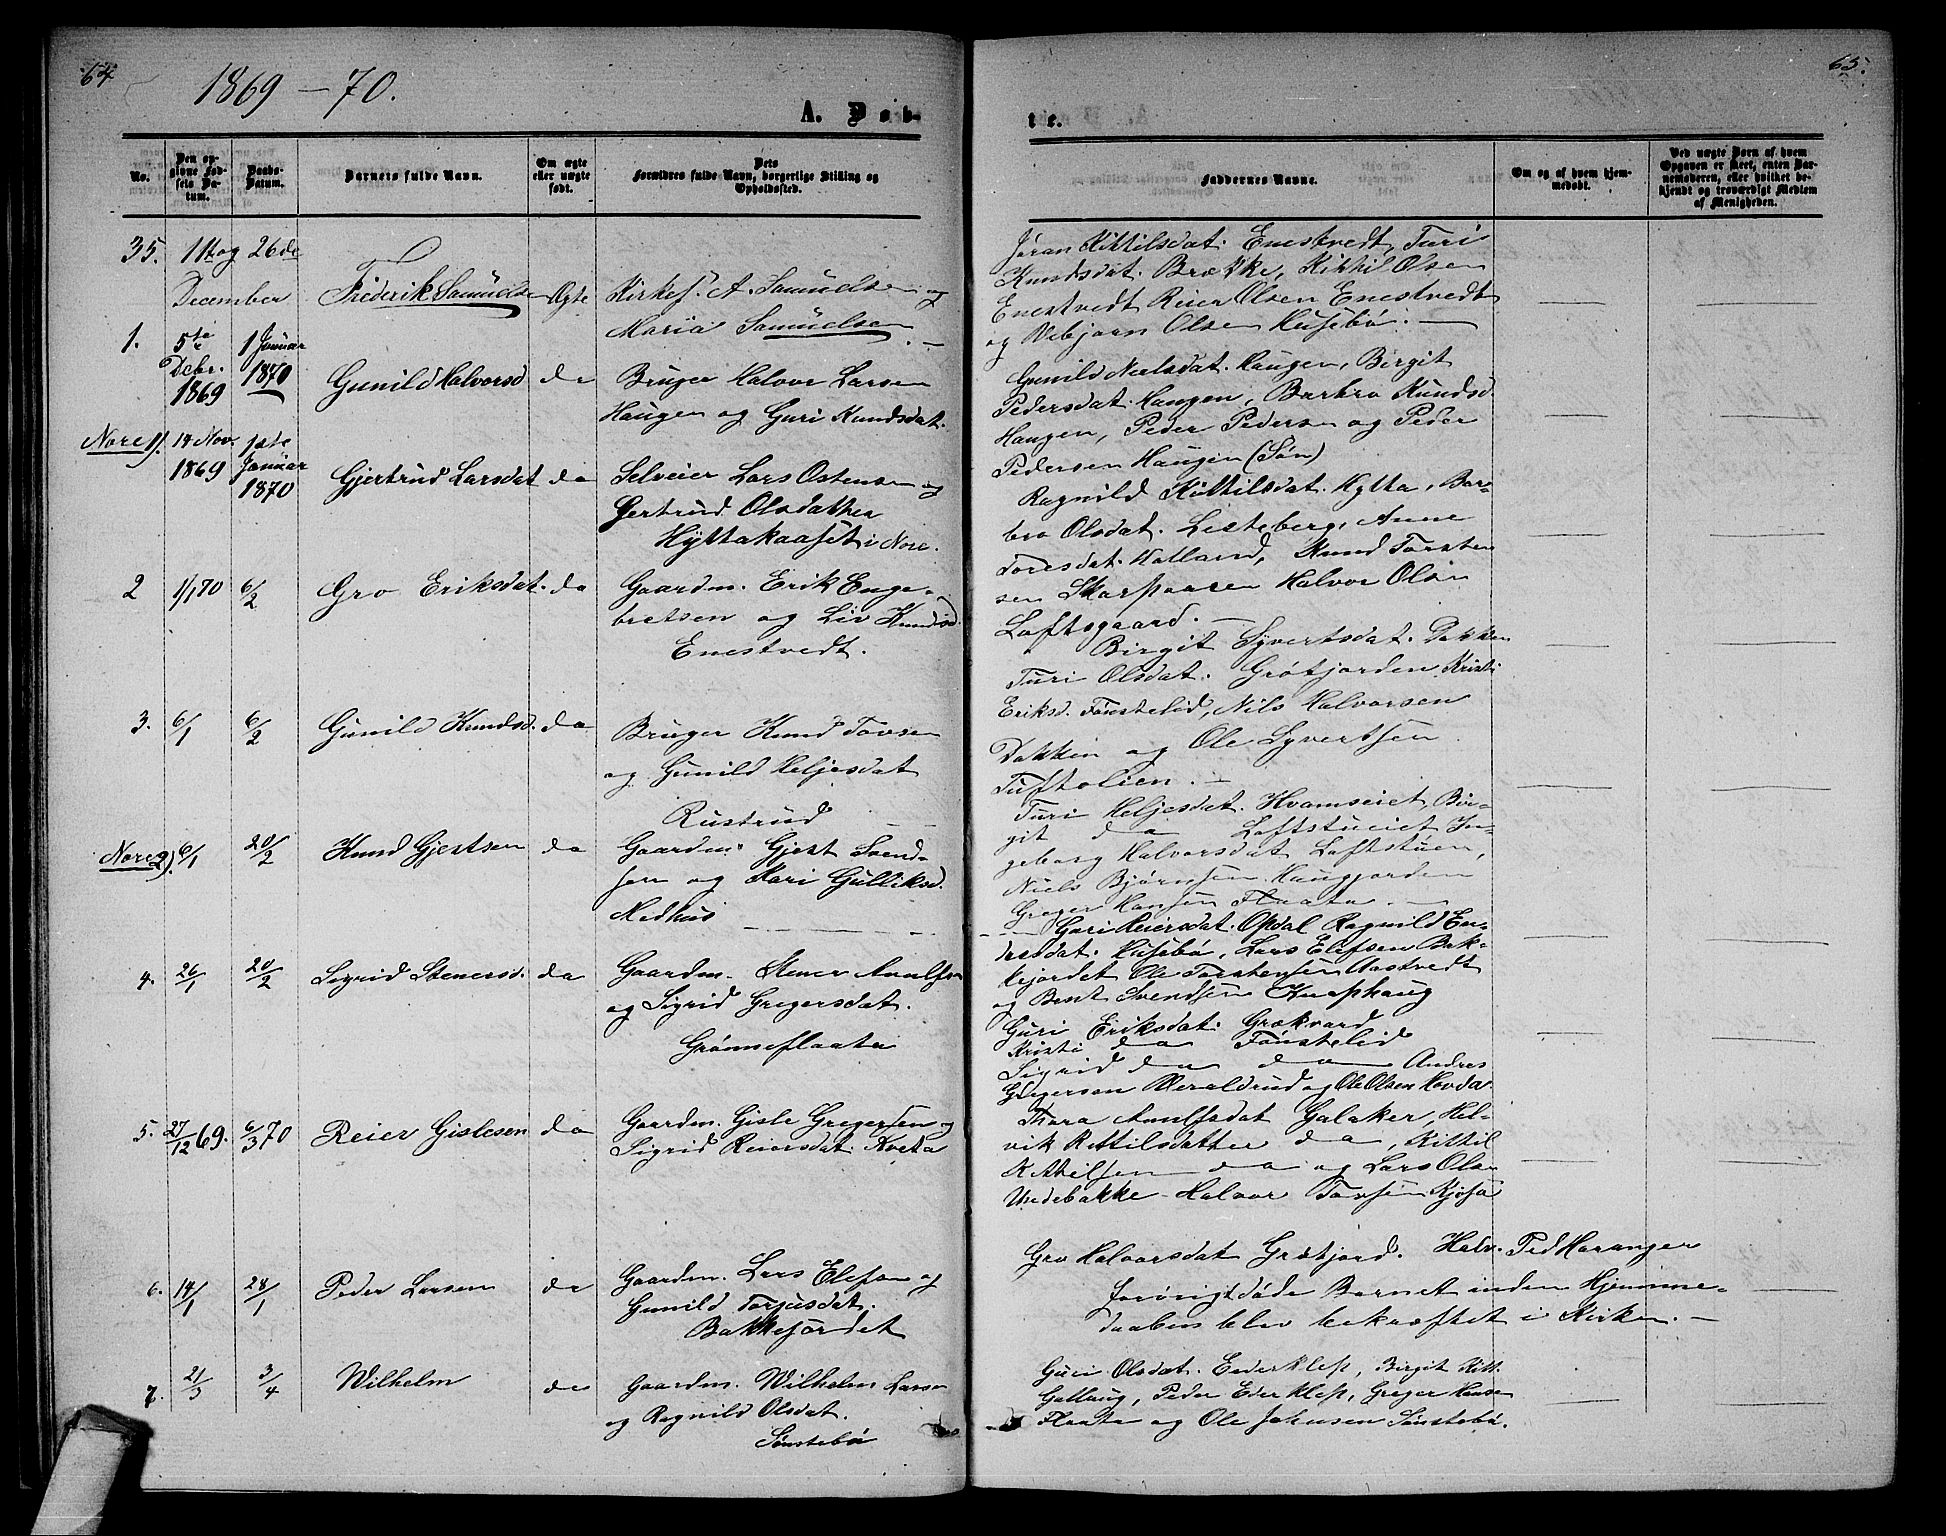 64
1869 - 70.
A. Døb-
No.
Den op-
givne Fød-
sels Da-
tum.
Daabs-
Datum.
Barnets fulde Navn.
Om ægte
eller uægte
født.
Dets
Forældres fulde Navn, borgerlige Stilling og
Opholdssted.
35. 11te og 26de
December Frederik Samuelsen Ægte Kirkes. A. Samuelsen og
Maria Samuelsen
1. 5te Debr. 1869 1 Januar 1870 Gunild Halvorsd da Bruger Halvor Larsen
Haugen og Guri Knudsdat.
Nore 1). 14 Nov. 1869 1ste Januar 1870 Gjertrud Larsdat da Selveier Lars Ostensen og
Gertrud Olsdatter
Hyttakaaset i Nore.
2 1/1 70 6/2 Gro Eriksdat. da Gaardm. Erik Enge-
bretsen og Liv Knudsd.
Enestvedt.
3. 6/1 6/2 Gunild Knudsd. da Bruger Knud Tovsen
og Gunild Heljesdat
Rustrud
Nore 2). 6/1 20/2 Knud Gjestsen da Gaardm. Gjest Svend-
sen og Kari Gulliksd.
Medhus
4. 26/1 20/2 Sigrid Stenersd. da Gaardm. Stener
og Sigrid Gregersdat.
Grønneflaata
5. 27/12 69. 6/3 70 Reier Gislesen da Gaardm. Gisle Gregersen og
Sigrid Reiersdat. Kveta
6. 14/1 28/1 Peder Larsen da Gaardm. Lars Elefsen og
Gunild Torjusdat.
Bakkejordet
7. 21/3 3/4 Wilhelm da Gaardm. Wilhelm Larsen
og Ragnild Olsdat.
Sønstebø
65.
te.
Faddernes Navne.
Om og af hvem hjem-
medøbt.
Ved uægte Børn af hvem
Opgaven er skeet, enten Bar-
nemoderen, eller hvilket be-
kjendt og troværdigt Medlem
af Menigheden.
Jøran Kittilsdat. Enestvedt, Turi
Knudsdat. Brække, Kittil Olsen
Enestvedt Reier Olsen Enestvedt
og Vebjørn Olsen Husebø.
Gunild Nielsdat. Haugen, Birgit
Pedersdat. Haugen, Barbro Knudsd
Haugen, Peder Pedersen og Peder
Pedersen Haugen (Søn)
Ragnild Kittilsdat. Hytta, Bar-
bro Olsdat. Listeberg, Anne
Toresdat. Hatland, Knud Torsten
sen Skarpaasen Halvor Olsen
Loftsgaard.
Birgit Syvertsdat. Dokken
Turi Olsdat. Grøtjorden, Kristi
Eriksd. Fønstelid, Nils Halvorsen
Dokken og Ole Syvertsen
Tuftolien.
Turi Heljesdat. Hvamseiet Bir-
git da Loftstueiet In-
geborg Halvorsdat Loftstuen,
Niels Bjørnsen Haugjorden
Greger Hansen Flaata
Guri Reiersdat. Opdal Ragnild En-
dresdat. Husebø, Lars Elefsen Bak-
kejordet Ole Torstensen Aastvedt
og Bent Svendsen Knaphaug
Guri Eriksdat.
Kristi da Fønstelid
Sigrid da da Andres
Gregersen Veraldrud og Ole Olsen Hovda
Thora Anulfsdat Galaker, Hel-
vik Kittilsdatter da, Kittil
Kittilsen da og Lars Olsen
Undebakke Halvor Tovsen Kjøsa
Gro Halvorsdat Grøtjord. Halv. Ped Haranger
forøvrigt døde Barnet inden Hjemme-
daaben blev bekræftet i Kirken.
Guri Olsdat. Ederklep, Birgit Kitt.
Gallaug, Peder Ederklep, Greger Hansen
Flaata og Ole Johnsen Sønstebø.